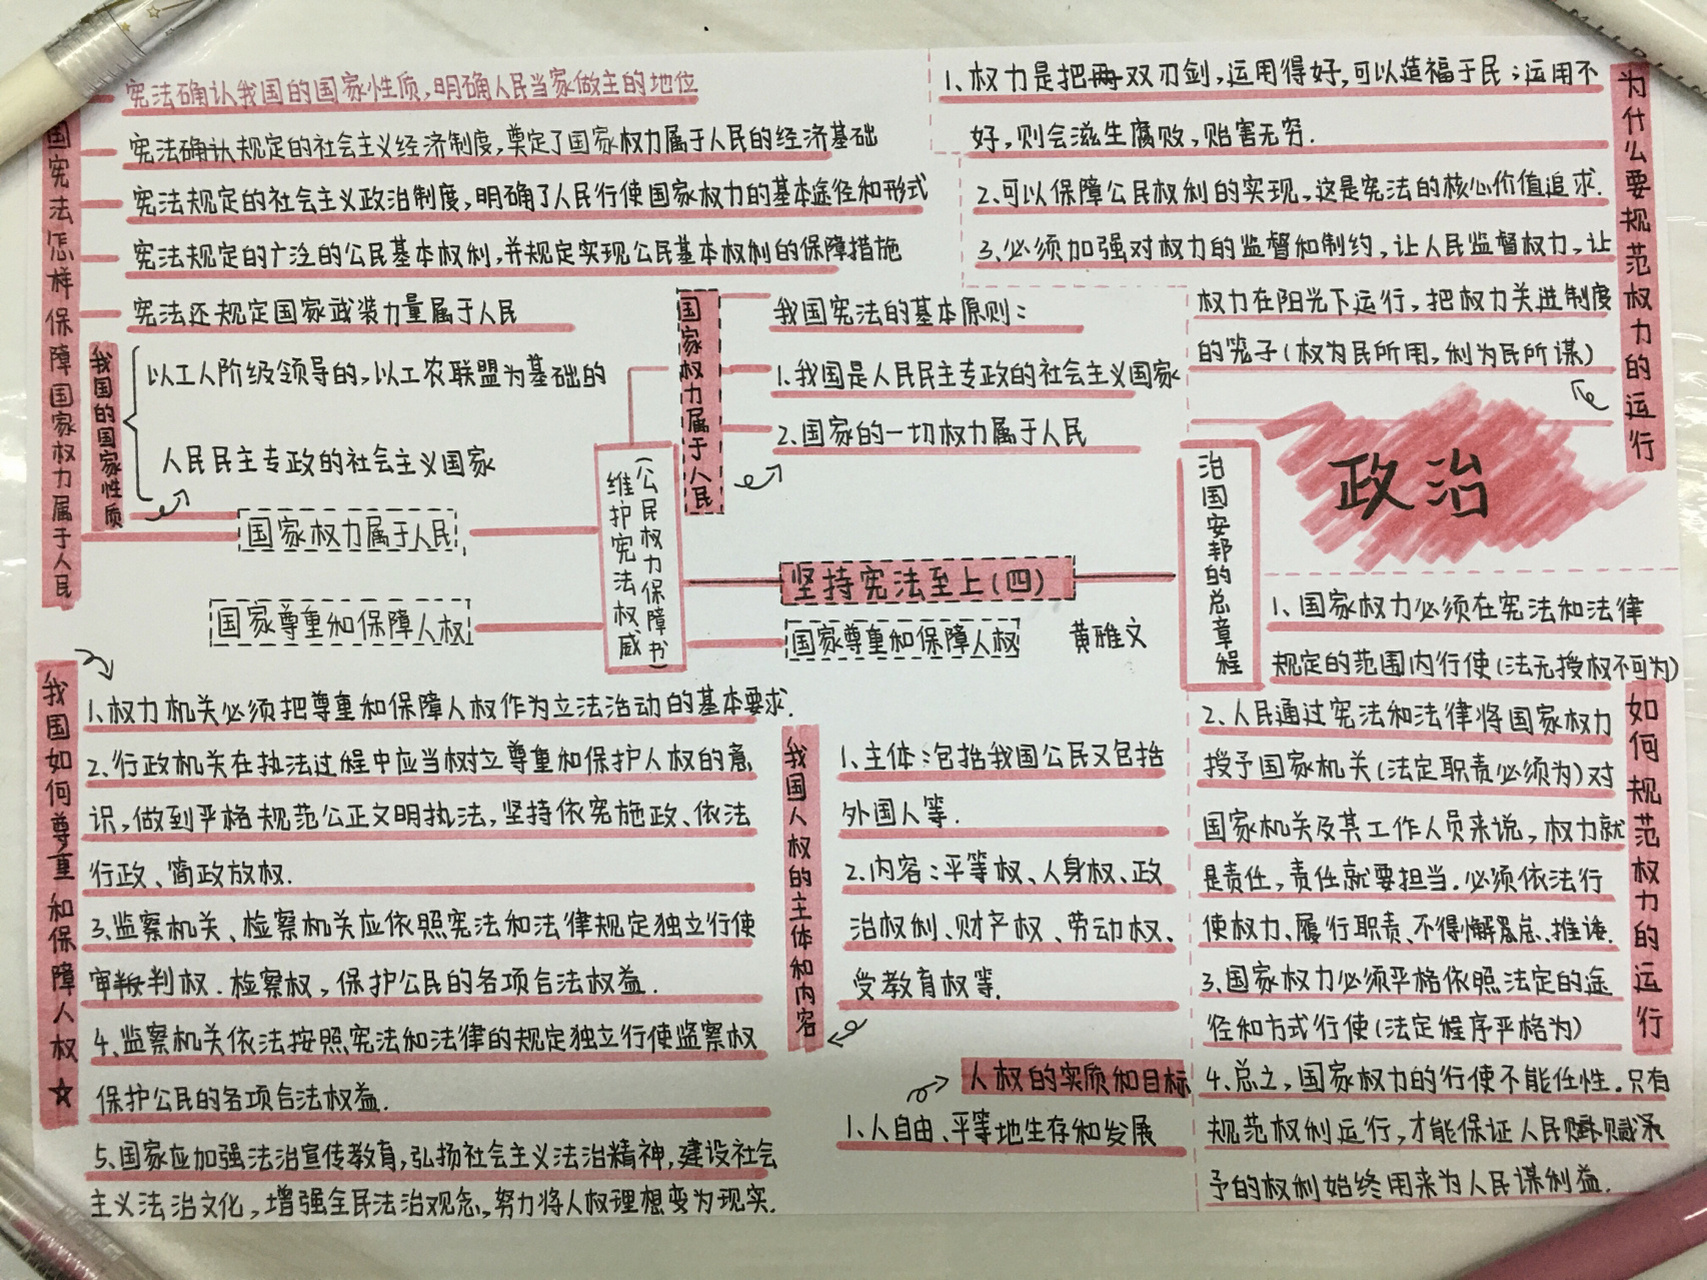 国宪法怎样保障国家权力属于人民
宪法确认我国的国家性质,明确人民当家做主的地位
宪法确认规定的社会主义经济制度,奠定了国家权力属于人民的经济基础
宪法规定的社会主义政治制度,明确了人民行使国家权力的基本途径和形式
宪法规定的广泛的公民基本权利,并规定实现公民基本权利的保障措施
宪法还规定国家武装力量属于人民
我国的国家性质
以工人阶级领导的,以工农联盟为基础的
人民民主专政的社会主义国家
国家权力属于人民
国家尊重和保障人权
维护宪法权威
(公民权力保障书)
国家权力属于人民
我国宪法的基本原则:
1.我国是人民民主专政的社会主义国家
2.国家的一切权力属于人民
坚持宪法至上(四)
国家尊重和保障人权
黄雅文
治国安邦的总章程
政治
为什么要规范权力的运行
1.权力是把双刃剑,运用得好,可以造福于民;运用不
好,则会滋生腐败,贻害无穷.
2.可以保障公民权利的实现,这是宪法的核心价值追求.
3.必须加强对权力的监督和制约,让人民监督权力,让
权力在阳光下运行,把权力关进制度
的笼子(权为民所用,利为民所谋)
我国如何尊重和保障人权☆
1.权力机关必须把尊重和保障人权作为立法活动的基本要求.
2.行政机关在执法过程中应当树立尊重和保护人权的意
识,做到严格规范公正文明执法,坚持依宪施政、依法
行政、简政放权.
3.监察机关、检察机关应依照宪法和法律规定独立行使
审判权.检察权,保护公民的各项合法权益.
4.监察机关依法按照宪法和法律的规定独立行使监察权
保护公民的各项合法权益.
5.国家应加强法治宣传教育,弘扬社会主义法治精神,建设社会
主义法治文化,增强全民法治观念,努力将人权理想变为现实.
我国人权的主体和内容
1.主体:包括我国公民又包括
外国人等.
2.内容:平等权、人身权、政
治权利、财产权、劳动权、
受教育权等.
人权的实质和目标
1.人自由、平等地生存和发展
如何规范权力的运行
1、国家权力必须在宪法和法律
规定的范围内行使(法无授权不可为)
2.人民通过宪法和法律将国家权力
授予国家机关(法定职责必须为)对
国家机关及其工作人员来说,权力就
是责任,责任就要担当.必须依法行
使权力、履行职责、不得懈怠、推诿.
3.国家权力必须严格依照法定的途
径和方式行使(法定程序严格为)
4.总之,国家权力的行使不能任性.只有
规范权利运行,才能保证人民赋
予的权利始终用来为人民谋利益.